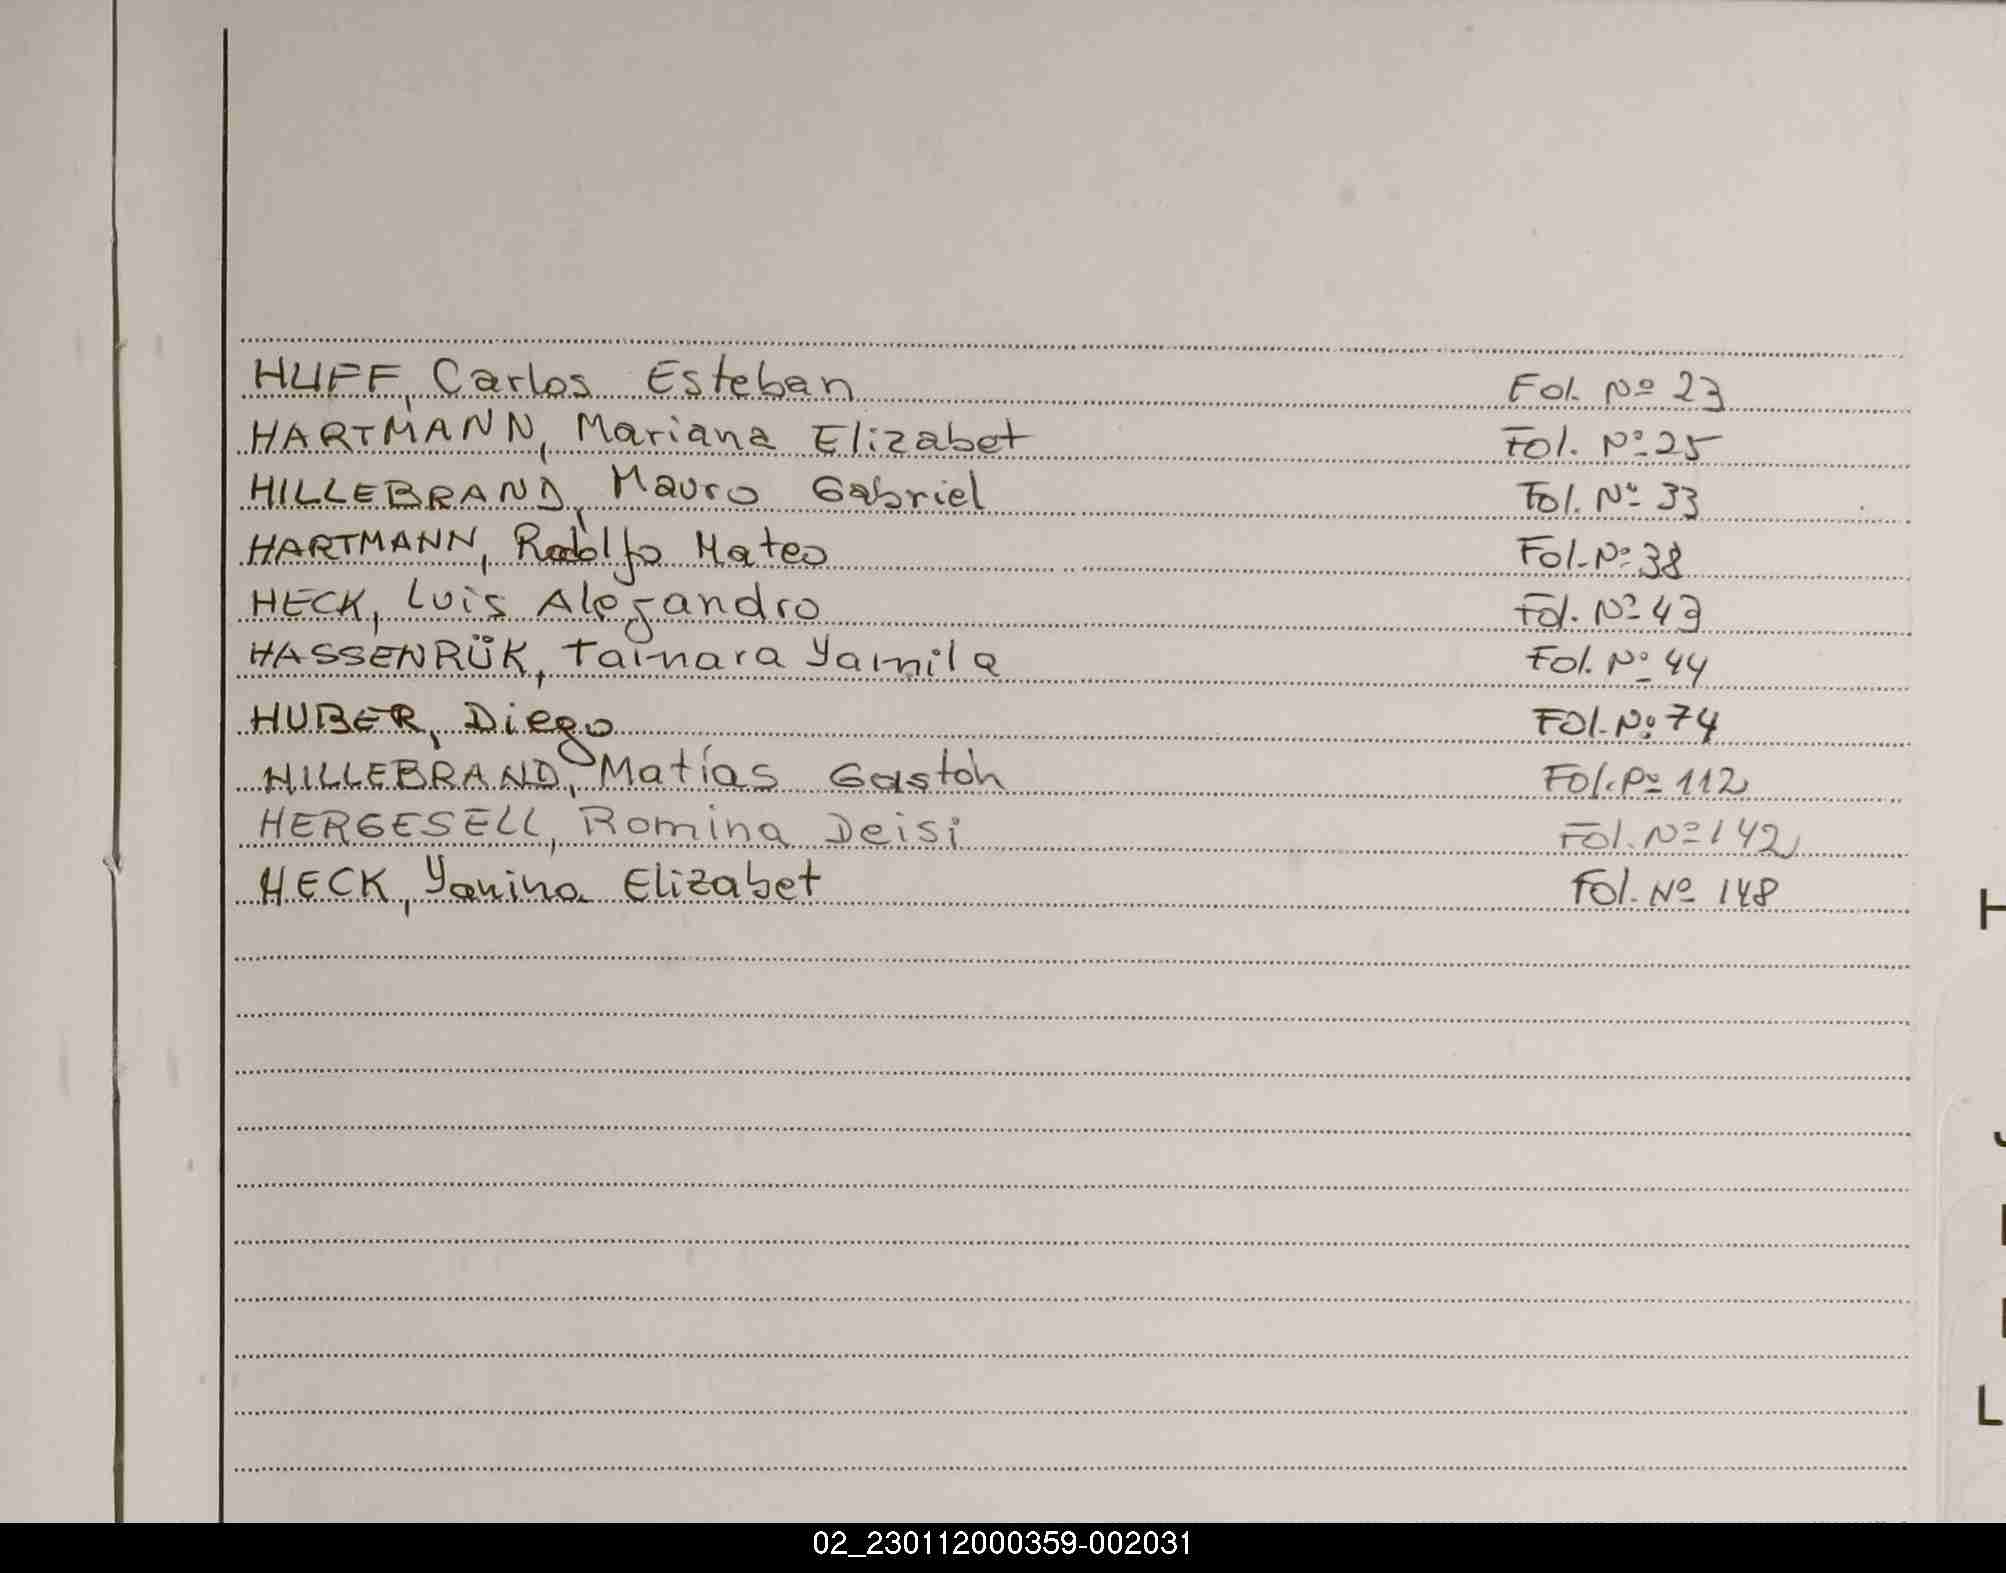 HUFF, Carlos Esteban Fol. Nº 23
HARTMANN, Mariana Elizabet Fol. Nº 25
HILLEBRAND, Mauro Gabriel Fol. Nº 33
HARTMANN, Rodolfo Mateo Fol. Nº 38
HECK, Luis Alejandro Fol. Nº 43
HASSENRÜK, Tamara Yamila Fol. Nº 44
HUBER, Diego Fol. Nº 74
HILLEBRAND, Matías Gastón Fol. Nº 112
HERGESELL, Romina Deisi Fol. Nº 142
HECK, Yanina Elizabet Fol. Nº 148
H
J
L
02_230112000359-002031